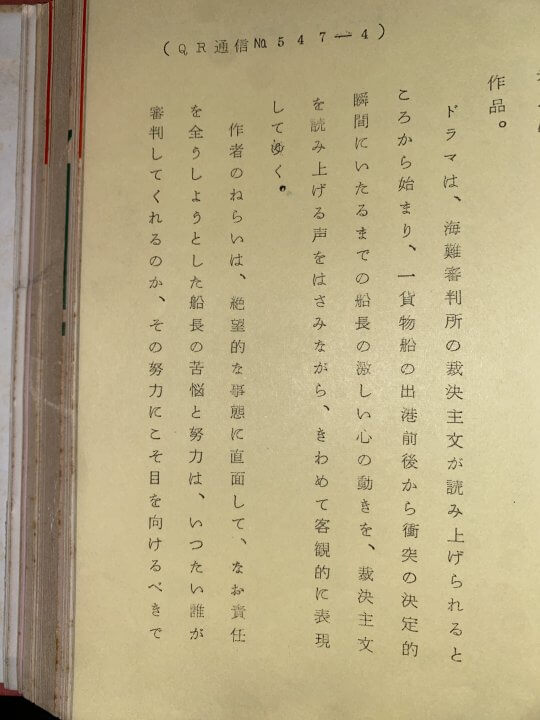 (QR通信№547―4)
作品。
ドラマは、海難審判所の裁決主文が読み上げられると
ころから始まり、一貨物船の出港前後から衝突の決定的
瞬間にいたるまでの船長の激しい心の動きを、裁決主文
を読み上げる声をはさみながら、きわめて客観的に表現
してゆく。
作者のねらいは、絶望的な事態に直面して、なお責任
を全うしようとした船長の苦悩と努力は、いつたい誰が
審判してくれるのか、その努力にこそ目を向けるべきで